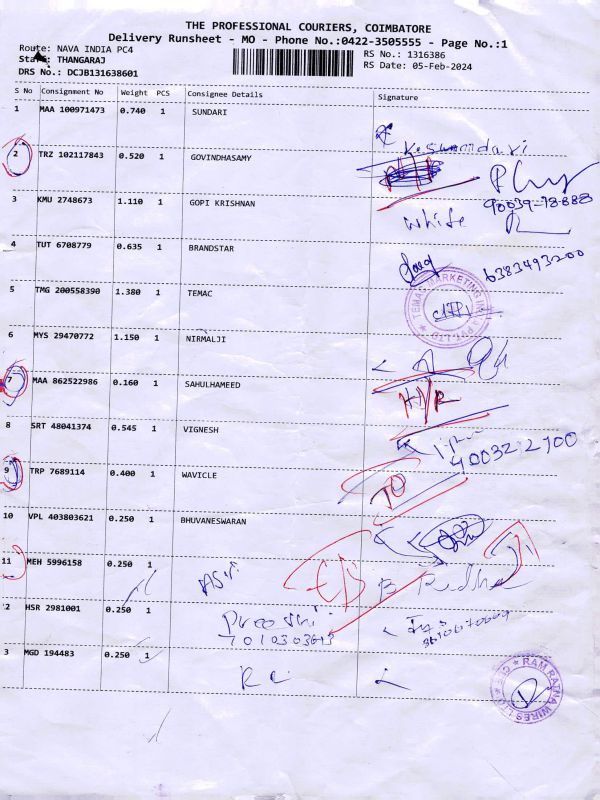 THE PROFESSIONAL COURIERS, COIMBATORE
Delivery Runsheet - MO - Phone No.:0422-3505555 - Page No.:1
Route: NAVA INDIA PC4
RS No.: 1316386
THANGARAJ
RS Date: 05-Feb-2024
DRS No.: DCJB131638601
S No Consignment No Weight PCS Consignee Details Signature
1 MAA 100971473 0.740 1 SUNDARI
K. Sundari
2 TRZ 102117843 0.520 1 GOVINDHASAMY
3 KMU 2748673 1.110 1 GOPI KRISHNAN
90039-78888
White
4 TUT 6708779 0.635 1 BRANDSTAR
6383493200
5 TMG 200558390 1.380 1 TEMAC
6 MYS 29470772 1.150 1 NIRMALJI
7 MAA 862522986 0.160 1 SAHULHAMEED
8 SRT 48041374 0.545 1 VIGNESH
9 TRP 7689114 0.400 1 WAVICLE
10 VPL 403803621 0.250 1 BHUVANESWARAN
11 MEH 5996158 0.250 1
2 HSR 2981001 0.250 1
3 MGD 194483 0.250 1
RAM RATNA WIRES LTD